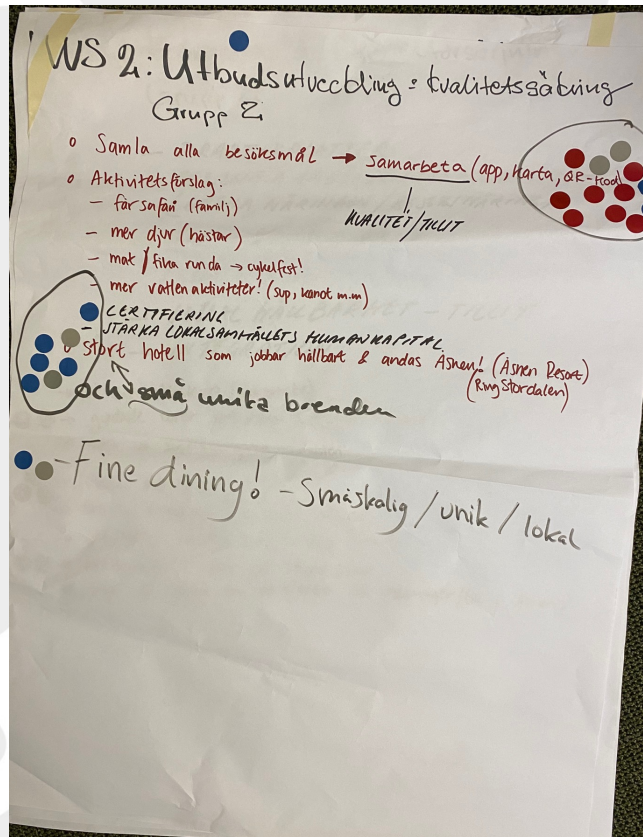 WS 2: Utbudsutveckling: kvalitetssäkring
Grupp 2
Samla alla besöksmål → samarbeta (app, karta, QR-kod
KVALITET/TILLIT
Aktivitetsförslag:
- fårsafari (familj)
- mer djur (hästar)
- mat / fika runda → cykelfest!
- mer vattenaktiviteter! (sup, kanot m.m)
- CERTIFIERING
- STÄRKA LOKALSAMHÄLLETS HUMANKAPITAL
Stort hotell som jobbar hållbart & andas Åsnen! (Åsnen Resort)
(Ring Stordalen)
och små unika boenden
- Fine dining! - Småskalig / unik / lokal